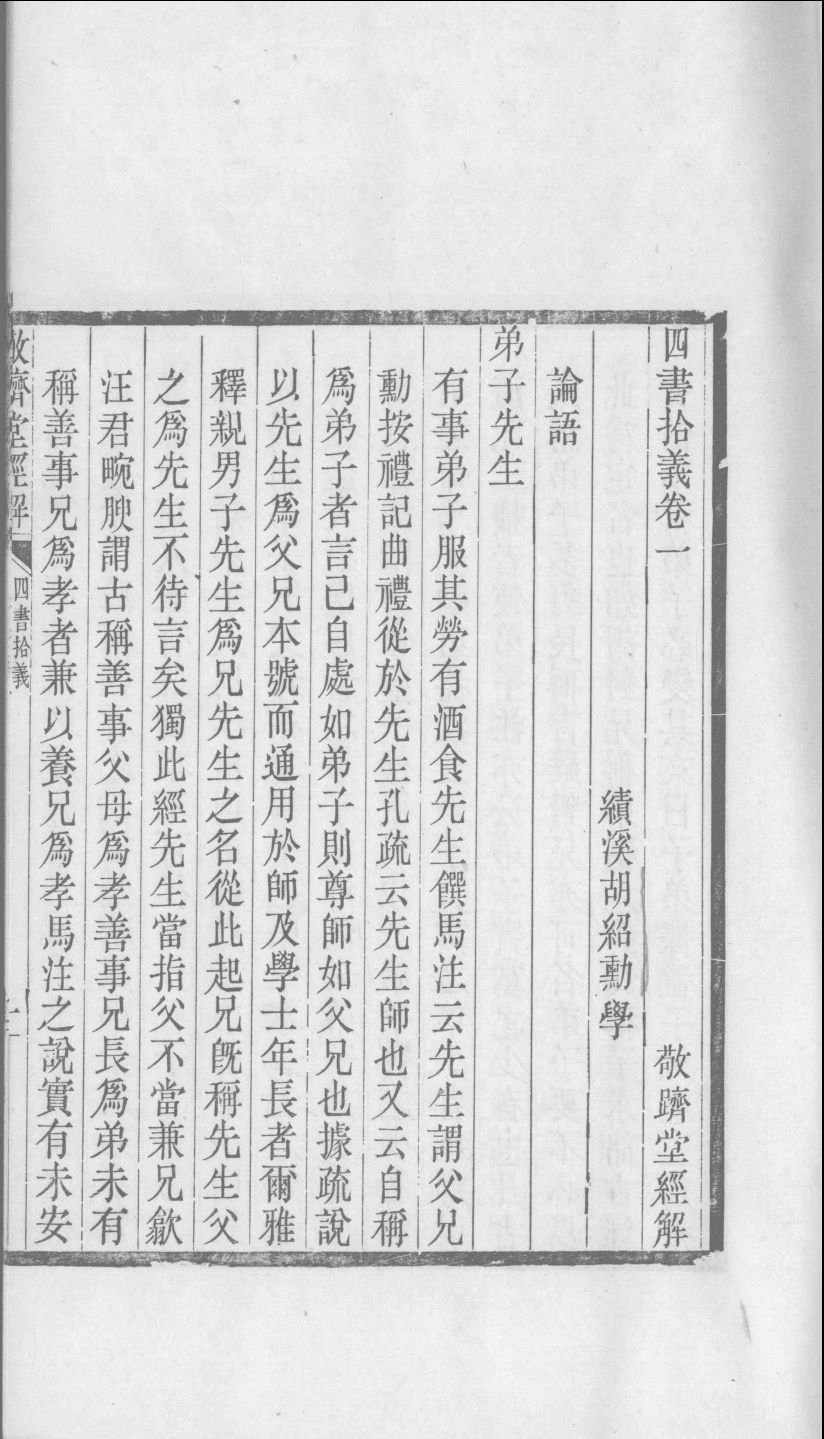 四書拾義卷一　敬躋堂經解
績溪胡紹勳學
論語
弟子先生
有事弟子服其勞有酒食先生饌馬注云先生謂父兄
勳按禮記曲禮從於先生孔疏云先生師也又云自稱
爲弟子者言己自處如弟子則尊師如父兄也據疏說
以先生爲父兄本號而通用於師及學士年長者爾雅
釋親男子先生爲兄先生之名從此起兄旣稱先生父
之爲先生不待言矣獨此經先生當指父不當兼兄歙
汪君畹腴謂古稱善事父母爲孝善事兄長爲弟未有
稱善事兄爲孝者兼以養兄爲孝馬注之說實有未安
敬躋堂經解　四書拾義　一